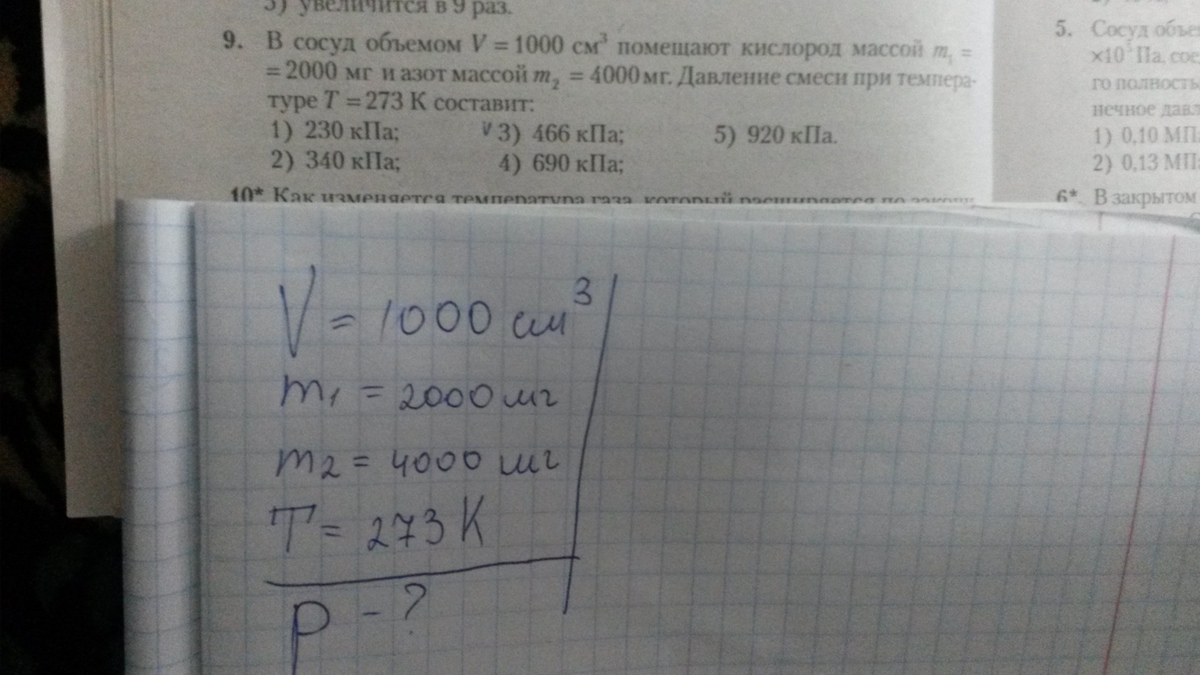 3) увеличится в 9 раз.
9. В сосуд объемом V = 1000 см³ помещают кислород массой m₁ =
= 2000 мг и азот массой m₂ = 4000 мг. Давление смеси при темпера-
туре T = 273 К составит:
1) 230 кПа; V 3) 466 кПа; 5) 920 кПа.
2) 340 кПа; 4) 690 кПа;
10* Как изменяется температура газа, который расширяется по
5. Сосуд
×10⁵ Па,
го
нечное
1) 0,10
2) 0,13
6* В закрытом
V = 1000 см³
m₁ = 2000 мг
m₂ = 4000 мг
T = 273 К
p - ?